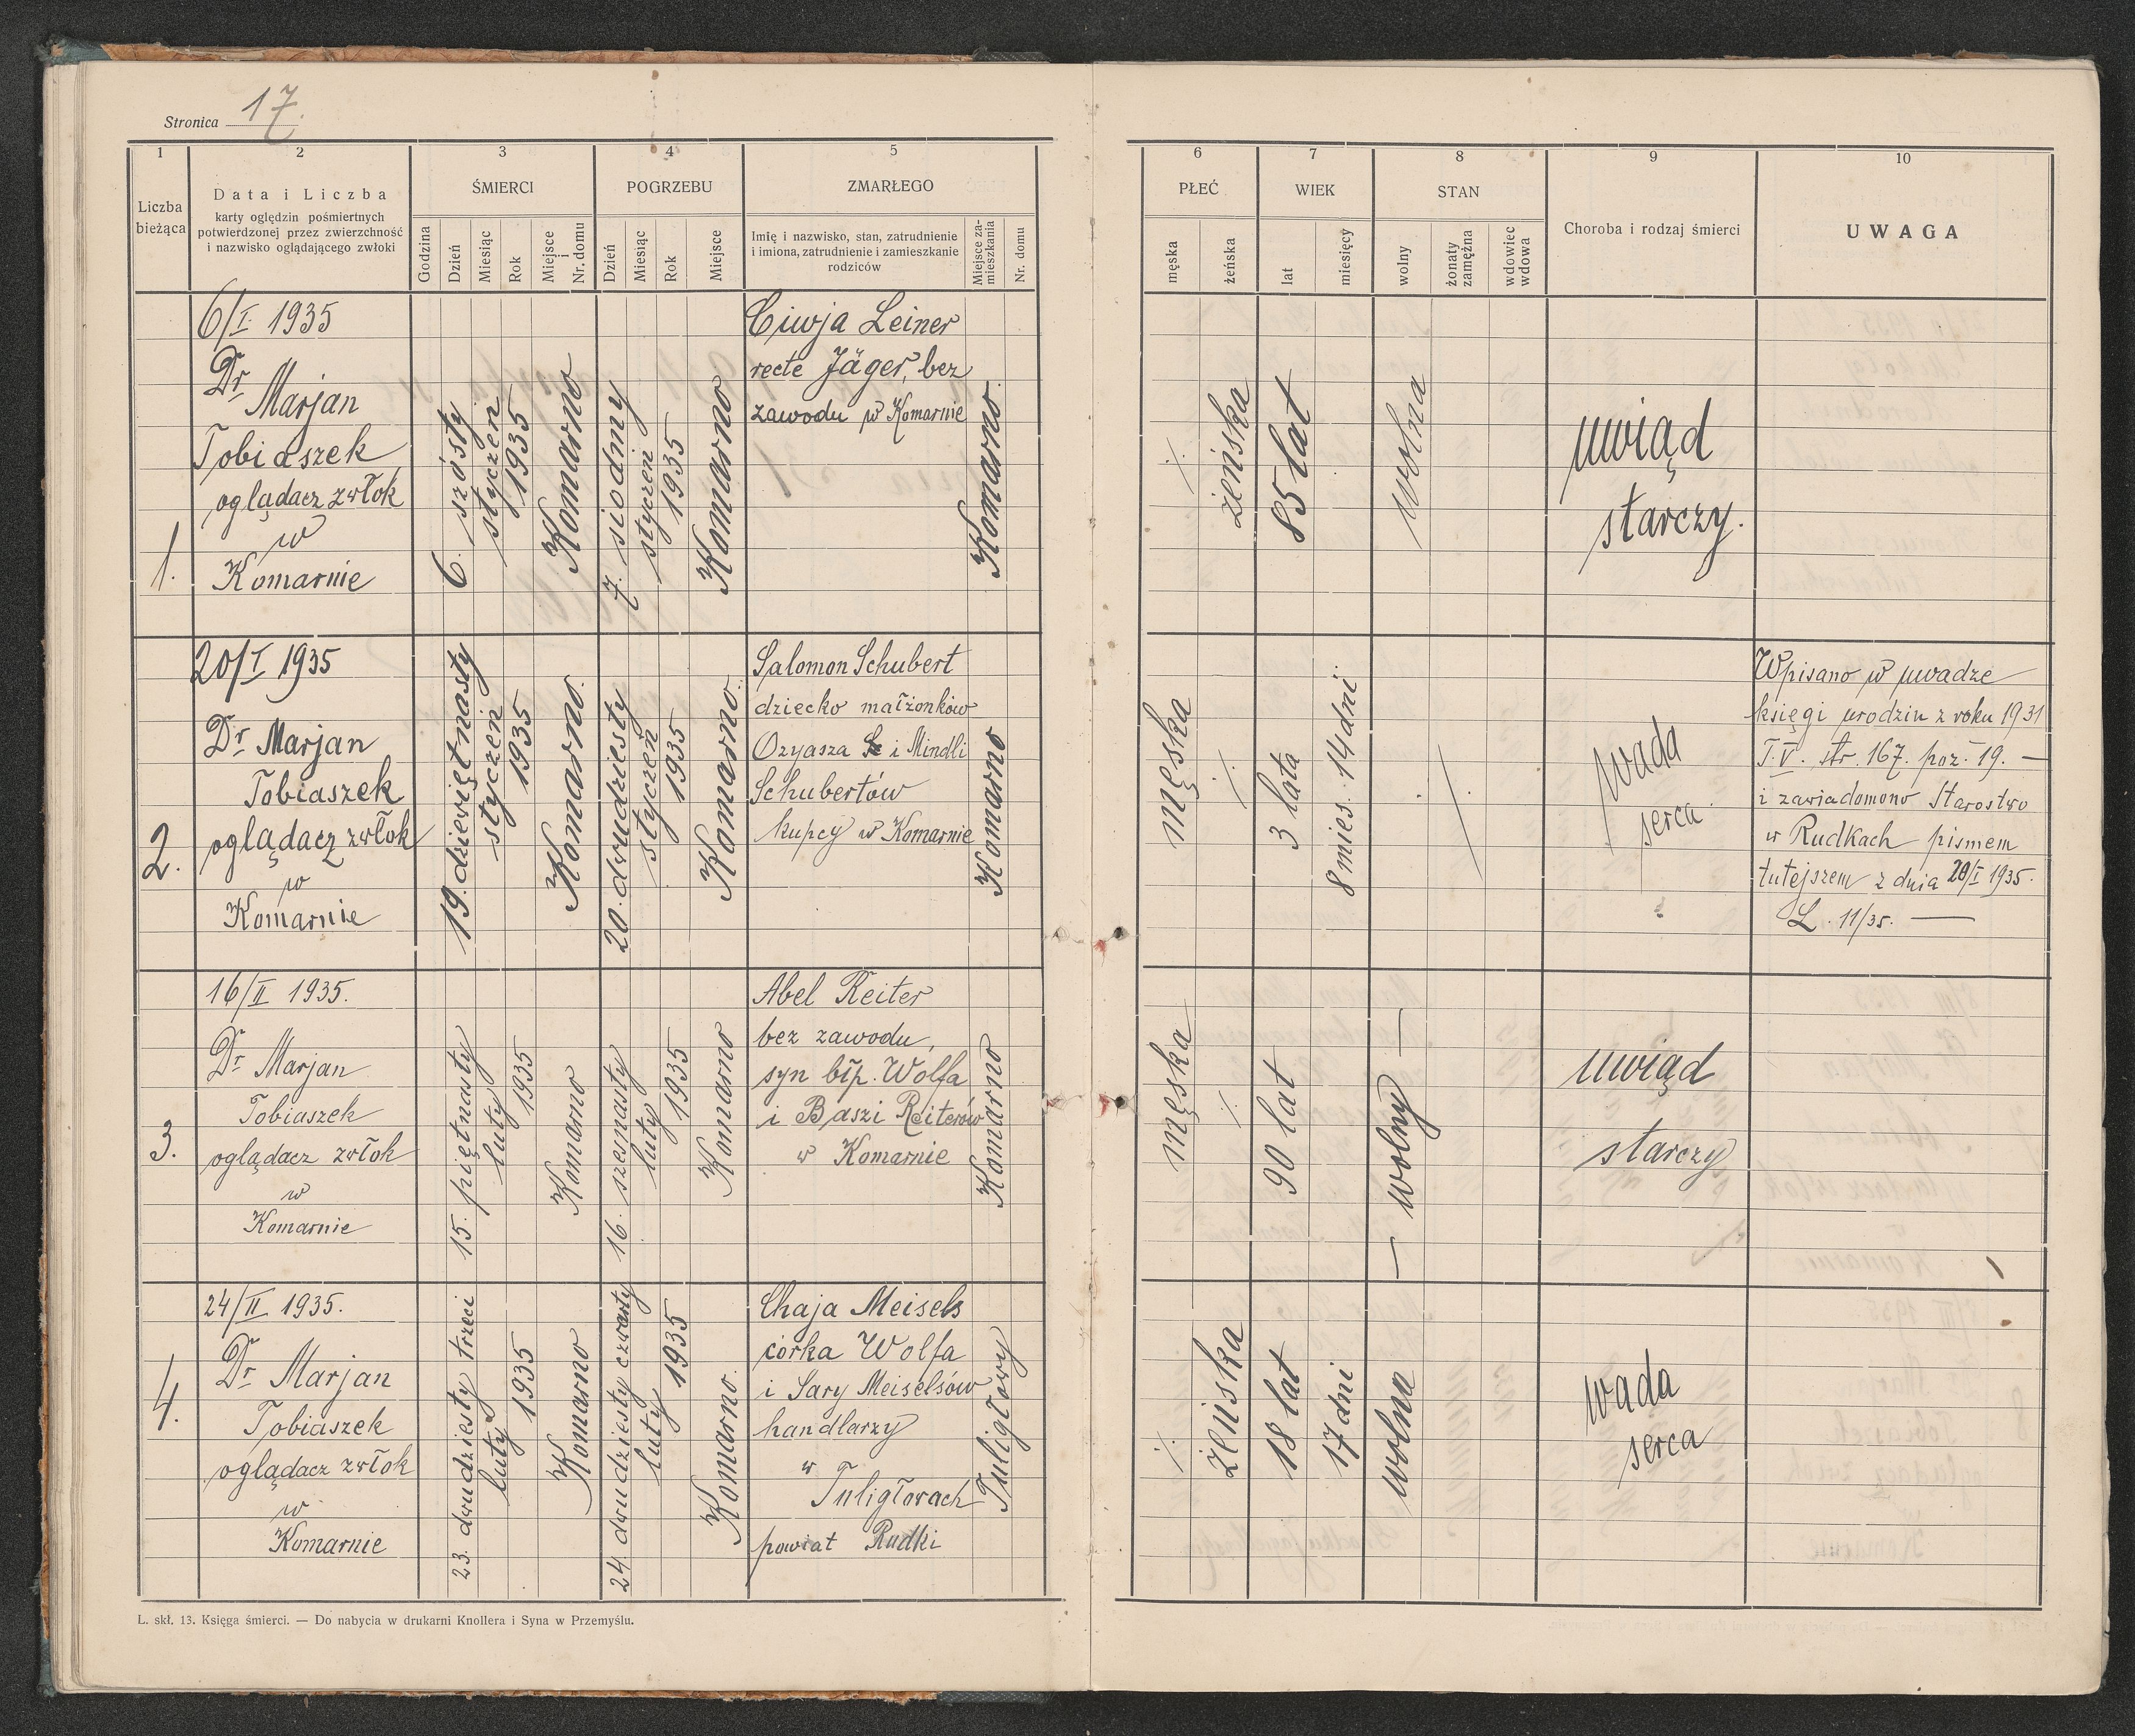 Stronica 17.
1
2
3
4
5
6
7
8
9
10
Liczba
bieżąca
Data i Liczba
karty oględzin pośmiertnych
potwierdzonej przez zwierzchność
i nazwisko oglądającego zwłoki
ŚMIERCI
Godzina
Dzień
Miesiąc
Rok
Miejsce
i
Nr. domu
POGRZEBU
Dzień
Miesiąc
Rok
Miejsce
ZMARŁEGO
Imię i nazwisko, stan, zatrudnienie
i imiona, zatrudnienie i zamieszkanie
rodziców
Miejsce za-
mieszkania
Nr. domu
PŁEĆ
męska
żeńska
WIEK
lat
miesięcy
STAN
wolny
żonaty
zamężna
wdowiec
wdowa
Choroba i rodzaj śmierci
UWAGA
1.
6/I. 1935
Dr
Marjan
Tobiaszek
oglądacz zwłok
w
Komarnie
6. szósty
styczeń
1935
Komarno
7. siodmy
styczeń
1935
Komarno
Ciwja Leiner
recte Jäger, bez
zawodu w Komarnie
Komarno
·/·
żeńska
85 lat
wolna
uwiąd
starczy.
2.
20/I 1935
Dr Marjan
Tobiaszek
oglądacz zwłok
w
Komarnie
19. dziewiętnasty
styczeń
1935
Komarno.
20. dwudziesty
styczeń
1935
Komarno.
Salomon Schubert
dziecko małżonków
Ozyasza i Mindli
Schubertów
kupcy w Komarnie
Komarno
męska
·/·
3 lata
8 mies. 14 dni
·/·
wada
serca
Wpisano w uwadze
księgi urodzin z roku 1931
T. V. str. 167. poz. 19. —
i zawiadomono Starostwo
w Rudkach pismem
tutejszem z dnia 20/I 1935.
L. 11/35. —
3.
16/II 1935.
Dr Marjan
Tobiaszek
oglądacz zwłok
w
Komarnie
15. piętnasty
luty
1935
Komarno
16. szesnasty
luty
1935
Komarno
Abel Reiter
bez zawodu,
syn błp. Wolfa
i Baszi Reiterów
w Komarnie
Komarno
męska
·/·
90 lat
— wolny —
uwiąd
starczy
4.
24/II 1935.
Dr Marjan
Tobiaszek
oglądacz zwłok
w
Komarnie
23. dwudziesty trzeci
luty
1935
Komarno
24. dwudziesty czwarty
luty
1935
Komarno.
Chaja Meisels
córka Wolfa
i Sary Meiselsów
handlarzy
w
Tuligłowach
powiat Rudki
Tuligłowy
·/·
żeńska
18 lat
17 dni
wolna
wada
serca
L. skł. 13. Księga śmierci. — Do nabycia w drukarni Knollera i Syna w Przemyślu.